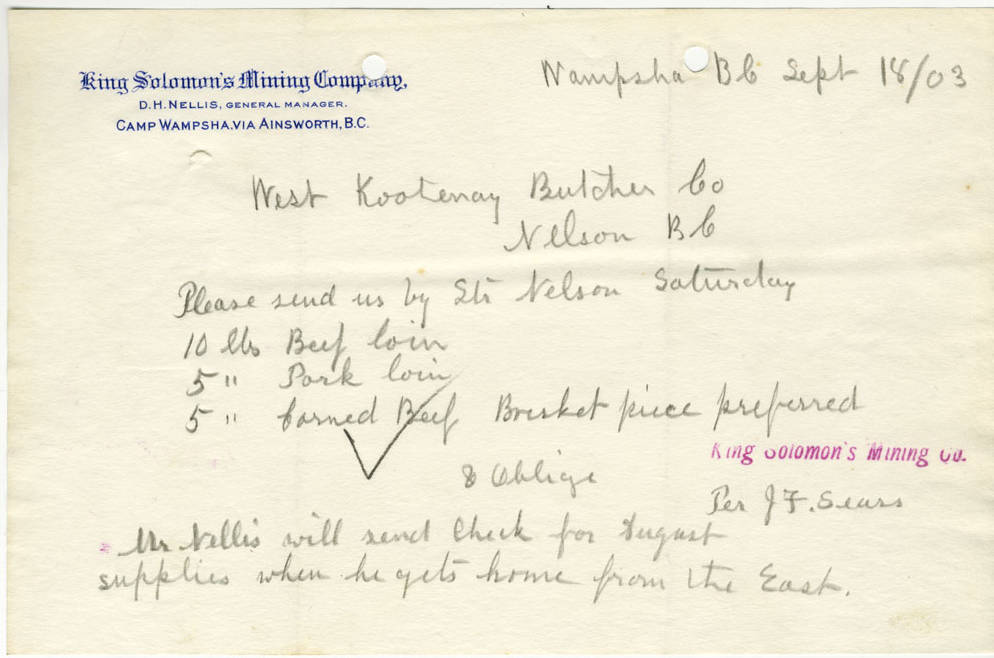 King Solomon's Mining Company,
D.H. NELLIS, GENERAL MANAGER.
CAMP WAMPSHA, VIA AINSWORTH, B.C.
Wampsha BC Sept 18/03
West Kootenay Butcher Co
Nelson BC
Please send us by Str Nelson Saturday
10 lbs Beef loin
5 " Pork loin
5 " Corned Beef Brisket piece preferred
& Oblige
King Solomon's Mining Co.
Per J F. Sears
Mr Nellis will send Check for August
supplies when he gets home from the East.